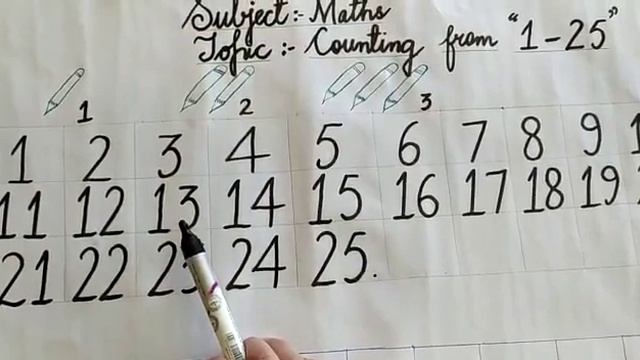 Subject:- Maths
Topic:- Counting from "1-25"
1 2 3
1 2 3 4 5 6 7 8 9
11 12 13 14 15 16 17 18 19
21 22 23 24 25.